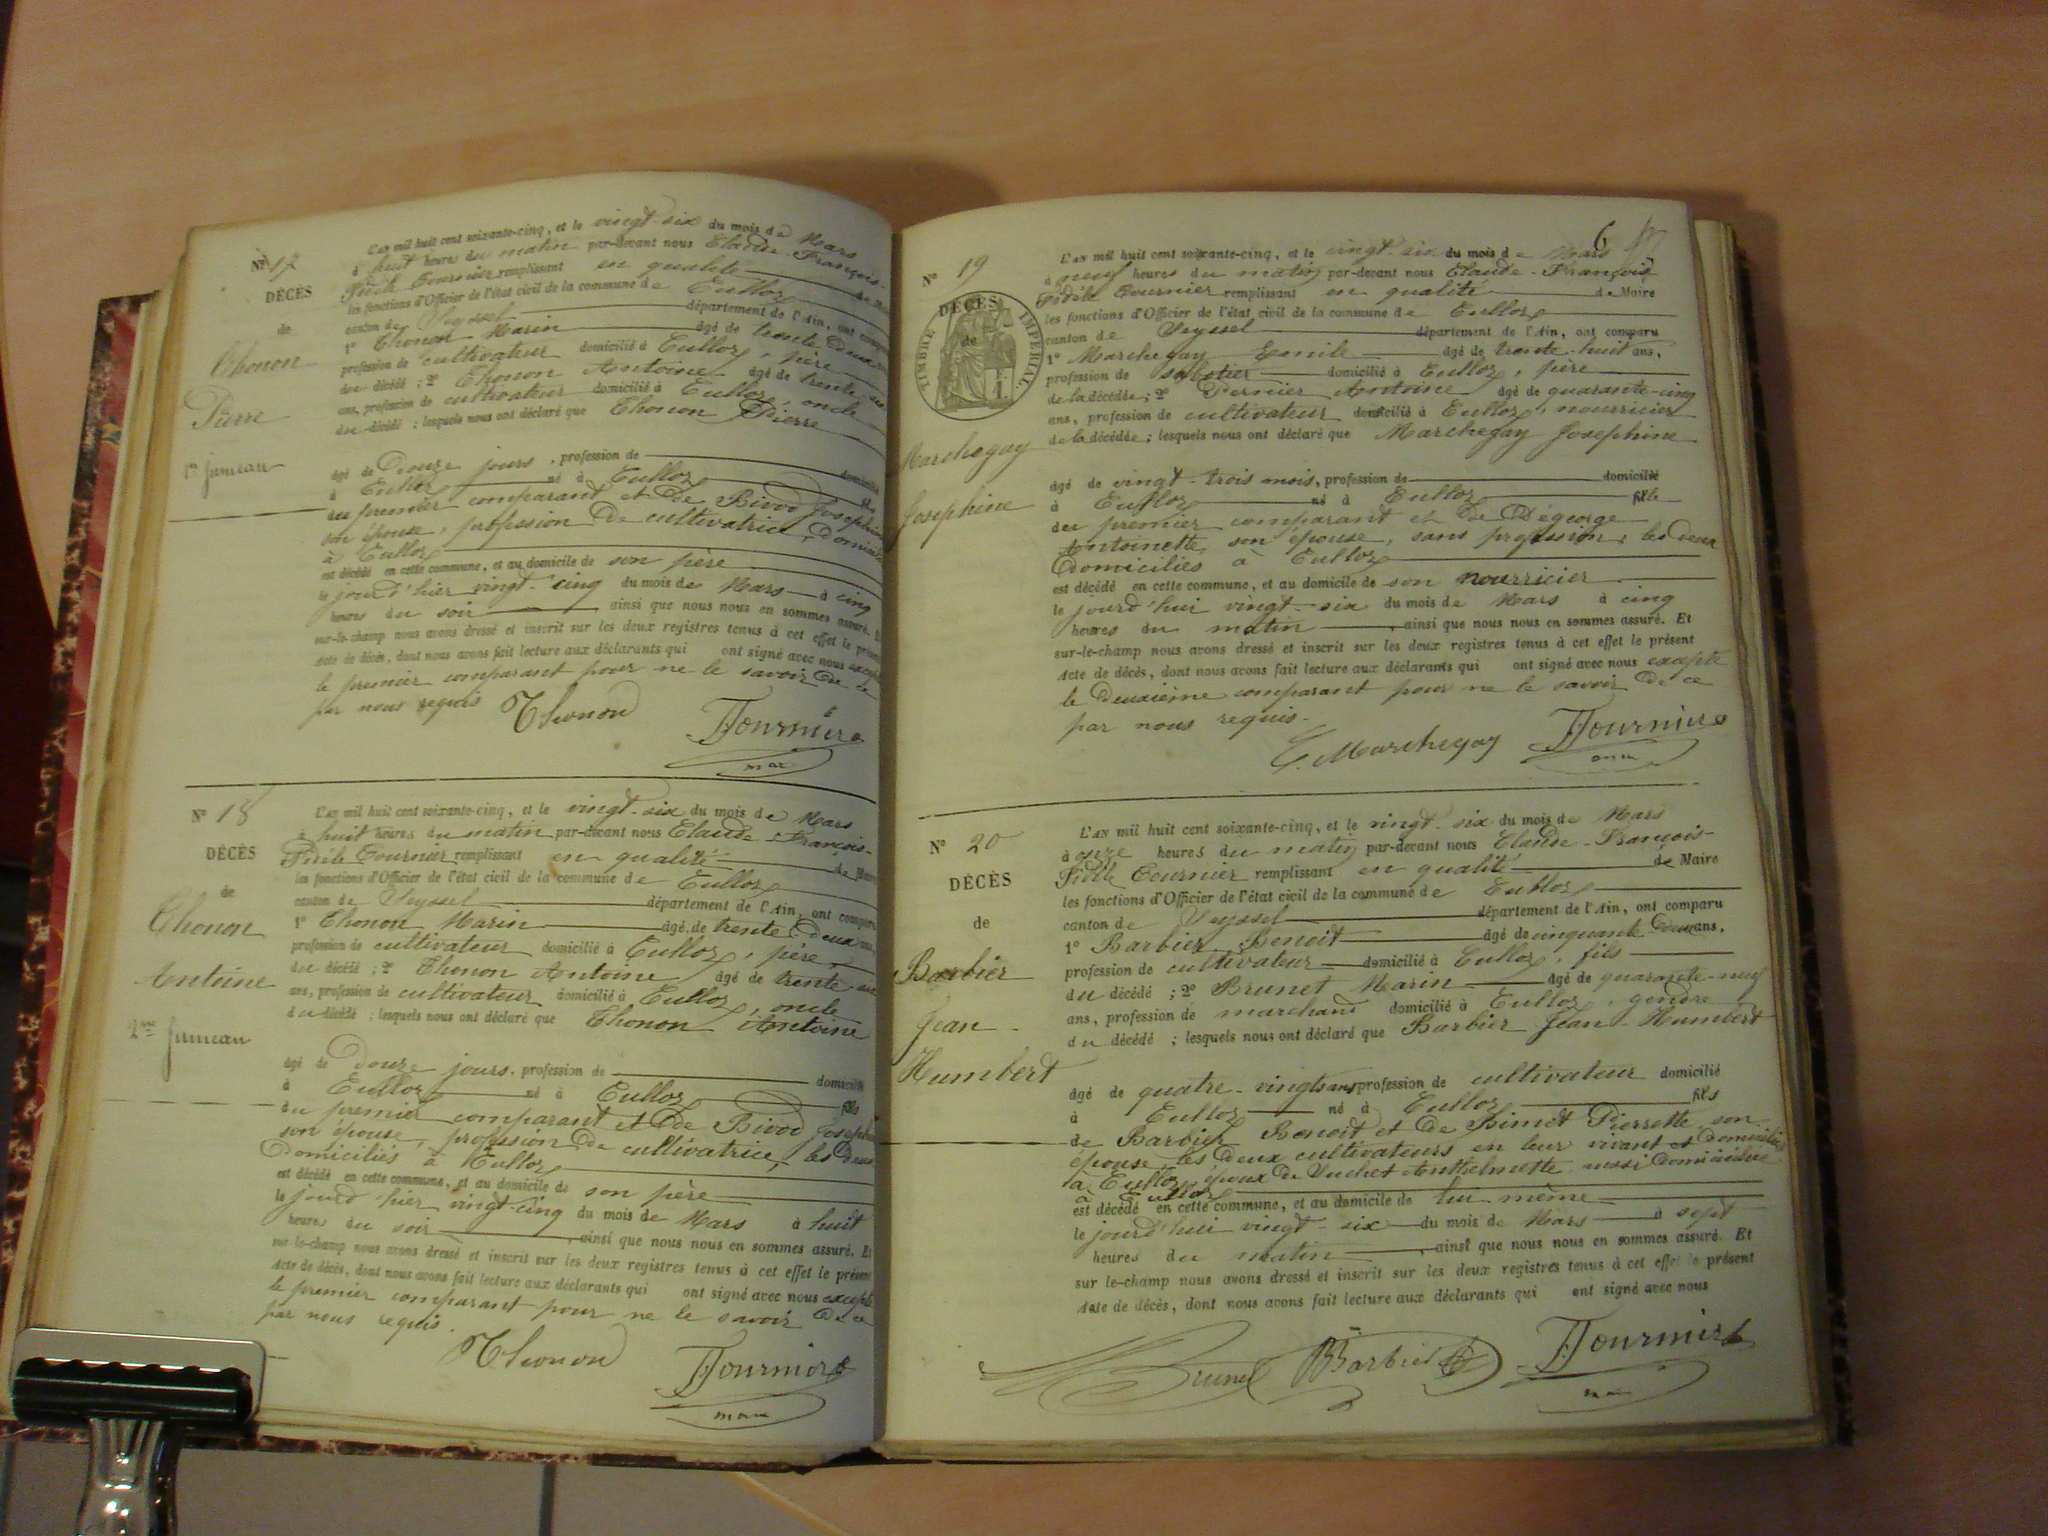 Nº 17
DÉCÈS
de
Thonon
Pierre
1er jumeau
L'an mil huit cent soixante-cinq, et le vingt-six du mois de Mars
à huit heures du matin par-devant nous Claude-François-
Fidèle Fournier remplissant en qualité de Maire
les fonctions d'Officier de l'état civil de la commune de Culloz
canton de Seyssel département de l'Ain, ont comparu
1º Thonon Marin âgé de trente deux ans,
profession de cultivateur domicilié à Culloz, père
du décédé ; 2º Thonon Antoine âgé de trente-six
ans, profession de cultivateur domicilié à Culloz, oncle
du décédé ; lesquels nous ont déclaré que Thonon Pierre
âgé de Douze jours, profession de domicilié
à Culloz né à Culloz fils
du premier comparant et de Bivod Josephine
son épouse, profession de cultivatrice, Domiciliés
à Culloz
est décédé en cette commune, et au domicile de son père
le jourd'hier vingt-cinq du mois de Mars à cinq
heures du soir ainsi que nous nous en sommes assuré. Et
sur-le-champ nous avons dressé et inscrit sur les deux registres tenus à cet effet le présent
Acte de décès, dont nous avons fait lecture aux déclarants qui ont signé avec nous excepté
le premier comparant pour ne le savoir de ce
par nous requis
Thonon Fournier
maire
Nº 18
DÉCÈS
de
Thonon
Antoine
2me Jumeau
L'an mil huit cent soixante-cinq, et le vingt-six du mois de Mars
à huit heures du matin par-devant nous Claude-François-
Fidèle Fournier remplissant en qualité de Maire
les fonctions d'Officier de l'état civil de la commune de Culloz
canton de Seyssel département de l'Ain, ont comparu
1º Thonon Marin âgé de trente deux ans,
profession de cultivateur domicilié à Culloz, père,
du décédé ; 2º Thonon Antoine âgé de trente-six
ans, profession de cultivateur domicilié à Culloz, oncle
du décédé ; lesquels nous ont déclaré que Thonon Antoine
âgé de Douze jours, profession de domicilié
à Culloz né à Culloz fils
du premier comparant et de Bivod Josephine
son épouse, profession de cultivatrice, les deux
Domiciliés à Culloz
est décédé en cette commune, et au domicile de son père
le jourd'hier vingt-cinq du mois de Mars à huit
heures du soir, ainsi que nous nous en sommes assuré. Et
sur-le-champ nous avons dressé et inscrit sur les deux registres tenus à cet effet le présent
Acte de décès, dont nous avons fait lecture aux déclarants qui ont signé avec nous excepté
le premier comparant pour ne le savoir de ce
par nous requis.
Thonon Fournier
maire
6
Nº 19
TIMBRE IMPÉRIAL
DÉCÈS
de
Marchegay
Josephine
L'an mil huit cent soixante-cinq, et le vingt-six du mois de Mars
à neuf heures du matin par-devant nous Claude-François
Fidèle Fournier remplissant en qualité de Maire
les fonctions d'Officier de l'état civil de la commune de Culloz
canton de Seyssel département de l'Ain, ont comparu
1º Marchegay Emile âgé de trente-huit ans,
profession de sabotier domicilié à Culloz, père
de la décédée ; 2º Pernier Antoine âgé de quarante-cinq
ans, profession de cultivateur domicilié à Culloz, nourricier
de la décédée ; lesquels nous ont déclaré que Marchegay Josephine
âgé de vingt-trois mois, profession de domicilié
à Culloz né à Culloz fille
du premier comparant et de Dégeorge
Antoinette, son épouse, sans profession, les deux
Domiciliés à Culloz
est décédé en cette commune, et au domicile de son nourricier
le jourd'hui vingt-six du mois de Mars à cinq
heures du matin, ainsi que nous nous en sommes assuré. Et
sur-le-champ nous avons dressé et inscrit sur les deux registres tenus à cet effet le présent
Acte de décès, dont nous avons fait lecture aux déclarants qui ont signé avec nous excepté
le Deuxième comparant pour ne le savoir de ce
par nous requis.
E. Marchegay Fournier
maire
Nº 20
DÉCÈS
de
Barbier
Jean
Humbert
L'an mil huit cent soixante-cinq, et le vingt-six du mois de Mars
à onze heures du matin par-devant nous Claude-François-
Fidèle Fournier remplissant en qualité de Maire
les fonctions d'Officier de l'état civil de la commune de Culloz
canton de Seyssel département de l'Ain, ont comparu
1º Barbier Benoit âgé de cinquante Deux ans,
profession de cultivateur domicilié à Culloz, fils
du décédé ; 2º Brunet Marin âgé de quarante-neuf
ans, profession de marchand domicilié à Culloz, gendre
du décédé ; lesquels nous ont déclaré que Barbier Jean-Humbert
âgé de quatre-vingts ans profession de cultivateur domicilié
à Culloz né à Culloz fils
de Barbier Benoit et de Bimet Pierrette, son
épouse les deux cultivateurs en leur vivant et domiciliés
à Culloz, époux de Vuchet Anthelmette aussi domiciliée
à Culloz
est décédé en cette commune, et au domicile de lui même
le jourd'hui vingt-six du mois de Mars à sept
heures du matin, ainsi que nous nous en sommes assuré. Et
sur le-champ nous avons dressé et inscrit sur les deux registres tenus à cet effet le présent
Acte de décès, dont nous avons fait lecture aux déclarants qui ont signé avec nous
Brunet Barbier B Fournier
maire